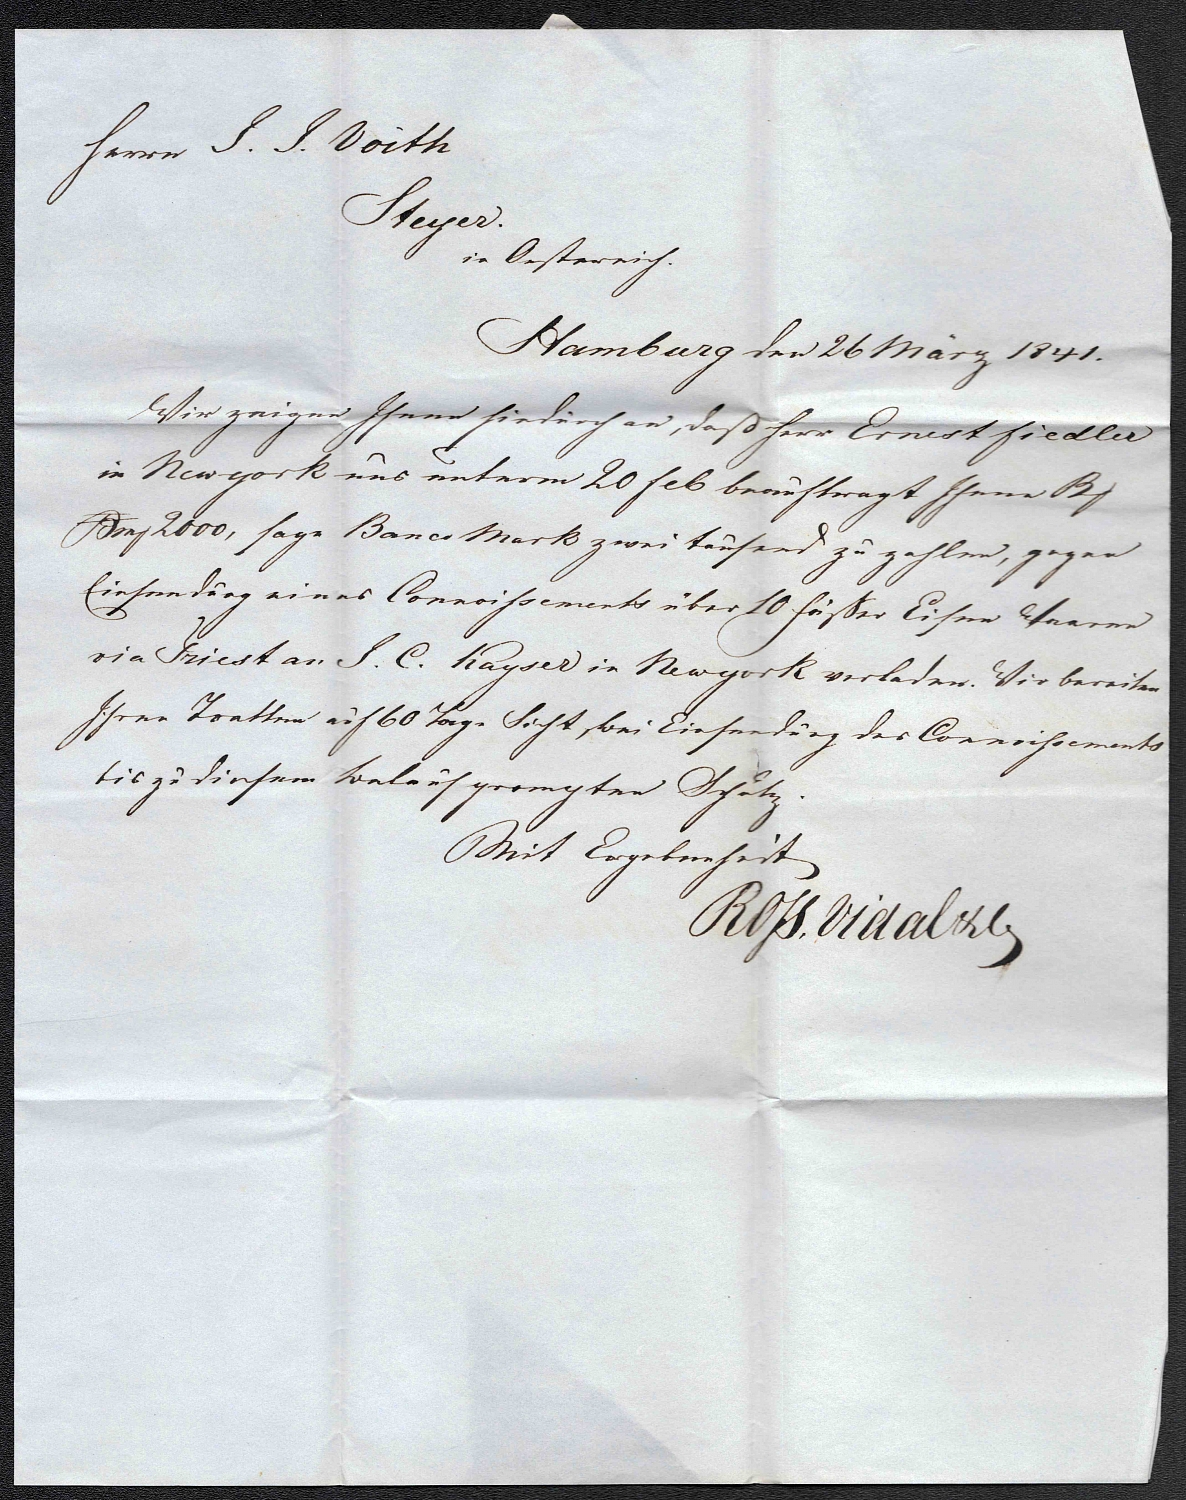 Herrn J. J. Voith
Steyer.
in Oesterreich.
Hamburg den 26 März 1841.
Wir zeigen Ihnen hiedurch an, daß Herr Ernest Fiedler
in Newyork uns unterm 20 Feb beauftragt Ihnen
2000, sage Banco Mark zwei tausend zu zahlen, gegen
Einsendung eines Connoissements über 10 Fässer Eisen Waaren
via Triest an J. C. Kayser in Newyork verladen. Wir bereiten
Ihren Tratten auf 60 Tage Sicht, bei Einsendung des Connoissements
bis zu diesem Belauf prompten Schutz.
Mit Ergebenheit
Ross, Vidal & Co